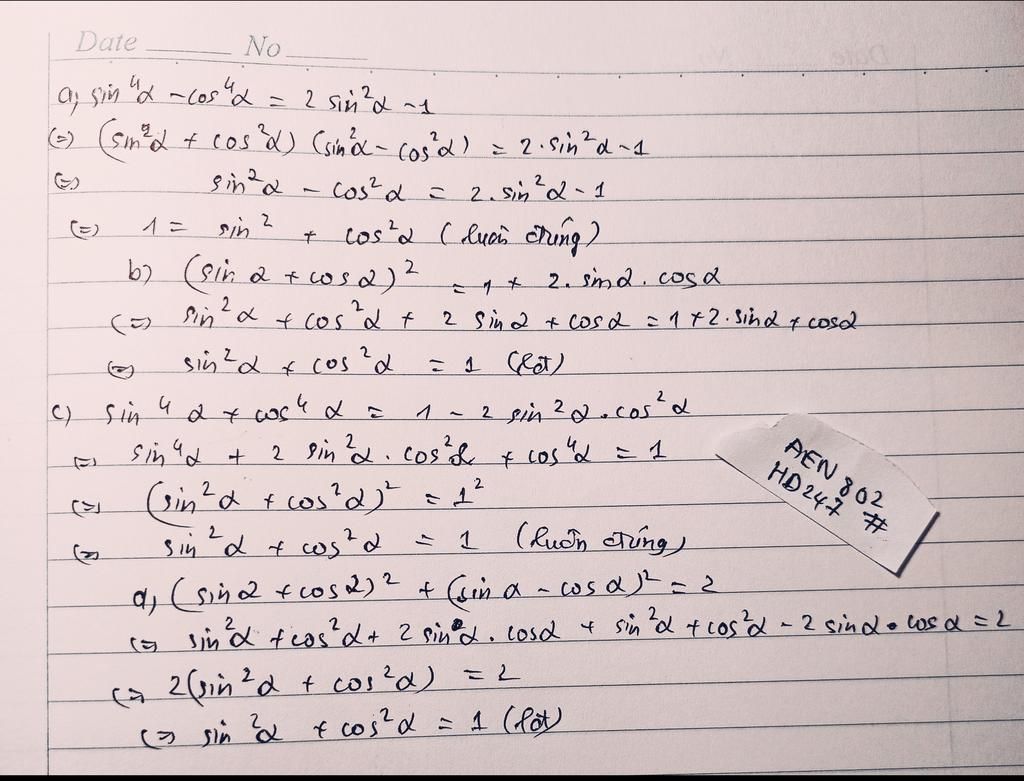 Date ______ No ______
a, sin⁴α - cos⁴α = 2 sin²α - 1
(=) (sin²α + cos²α) (sin²α - cos²α) = 2.sin²α - 1
(=) sin²α - cos²α = 2.sin²α - 1
(=) 1 = sin² + cos²α (luôn đúng)
b) (sin α + cos α)² = 1 + 2. sinα. cosα
(=) sin²α + cos²α + 2 sinα + cosα = 1 + 2.sinα + cosα
(=) sin²α + cos²α = 1 (lđ)
c) sin⁴α + cos⁴α = 1 - 2 sin²α.cos²α
(=) sin⁴α + 2 sin²α. cos²α + cos⁴α = 1
(=) (sin²α + cos²α)² = 1²
(=) sin²α + cos²α = 1 (luôn đúng)
d, (sinα + cosα)² + (sin α - cos α)² = 2
(=) sin²α + cos²α + 2 sinα. cosα + sin²α + cos²α - 2 sinα.cosα = 2
(=) 2(sin²α + cos²α) = 2
(=) sin²α + cos²α = 1 (lđ)
AEN 802
HD247 #